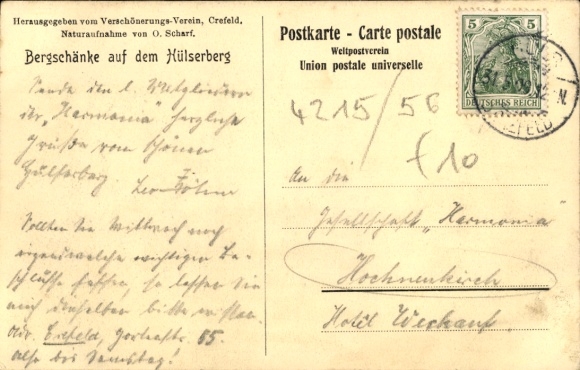 Herausgegeben vom Verschönerungs-Verein, Crefeld,
Naturaufnahme von O. Scharf.
Bergschänke auf dem Hülserberg
Sende den l. Mitgliedern
der „Harmonia" herzliche
Grüße vom schönen
Hülserberg.
Leo Böhm
Sollten Sie Mittwoch noch
irgendwelche wichtigen Be-
schlüsse fassen, so lassen Sie
mich dieselben bitte wissen.
Adr. Crefeld, 85.
also bis Samstag!
Postkarte - Carte postale
Weltpostverein
Union postale universelle
5 5
DEUTSCHES REICH
N.
4215/56
f10
An die
Gesellschaft „Harmonia"
Hochneukirch
Hotel